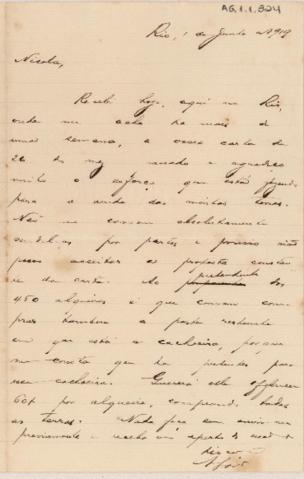 AG.1.1.324
Rio, 1 de Junho de 1919
Nicola,
Recebi hoje, aqui no Rio,
onde me acho ha mais de
uma semana, a sua carta de
26 do
muito o esforço que está fazendo
para a venda das minhas terras.
Não me convem absolutamente
vendel-as por partes e por isso não
posso acceitar a proposta constan-
te da carta. Ao pretendente dos
450 alqueires é que convem com-
prar tambem a parte restante
em que está a cachoeira, porque
me consta que ha pretendentes para
essa cachoeira. Quererá elle offerecer
60$ por alqueire, comprando todas
as terras. Nada faça sem ouvir-me
previamente e receba um aperto de mão do